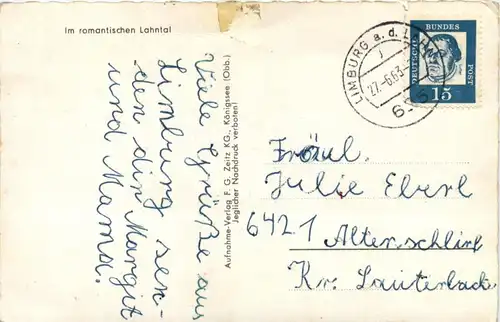 Im romantischen Lahntal
Viele Grüße aus
Limburg sen-
den dir Margit
und Mama.
Aufnahme-Verlag F. G. Zeitz KG., Königssee (Obb.)
Jeglicher Nachdruck verboten!
LIMBURG a. d. LAHN
27.-6.63
DEUTSCHE BUNDES POST
15
Fräul.
Julie Eberl
6421
Altenschlirf
Kr. Lauterbach